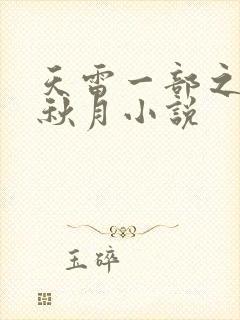 天雷一部之
秋月小说
玉碎